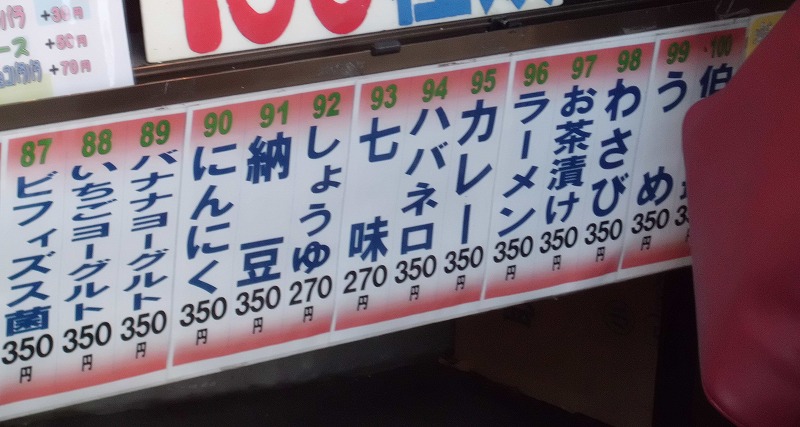 +30円
ース +50円
+70円
100
87 ビフィズス菌 350円
88 いちごヨーグルト 350円
89 バナナヨーグルト 350円
90 にんにく 350円
91 納豆 350円
92 しょうゆ 270円
93 七味 270円
94 ハバネロ 350円
95 カレー 350円
96 ラーメン 350円
97 お茶漬け 350円
98 わさび 350円
99 うめ 350円
100 伯